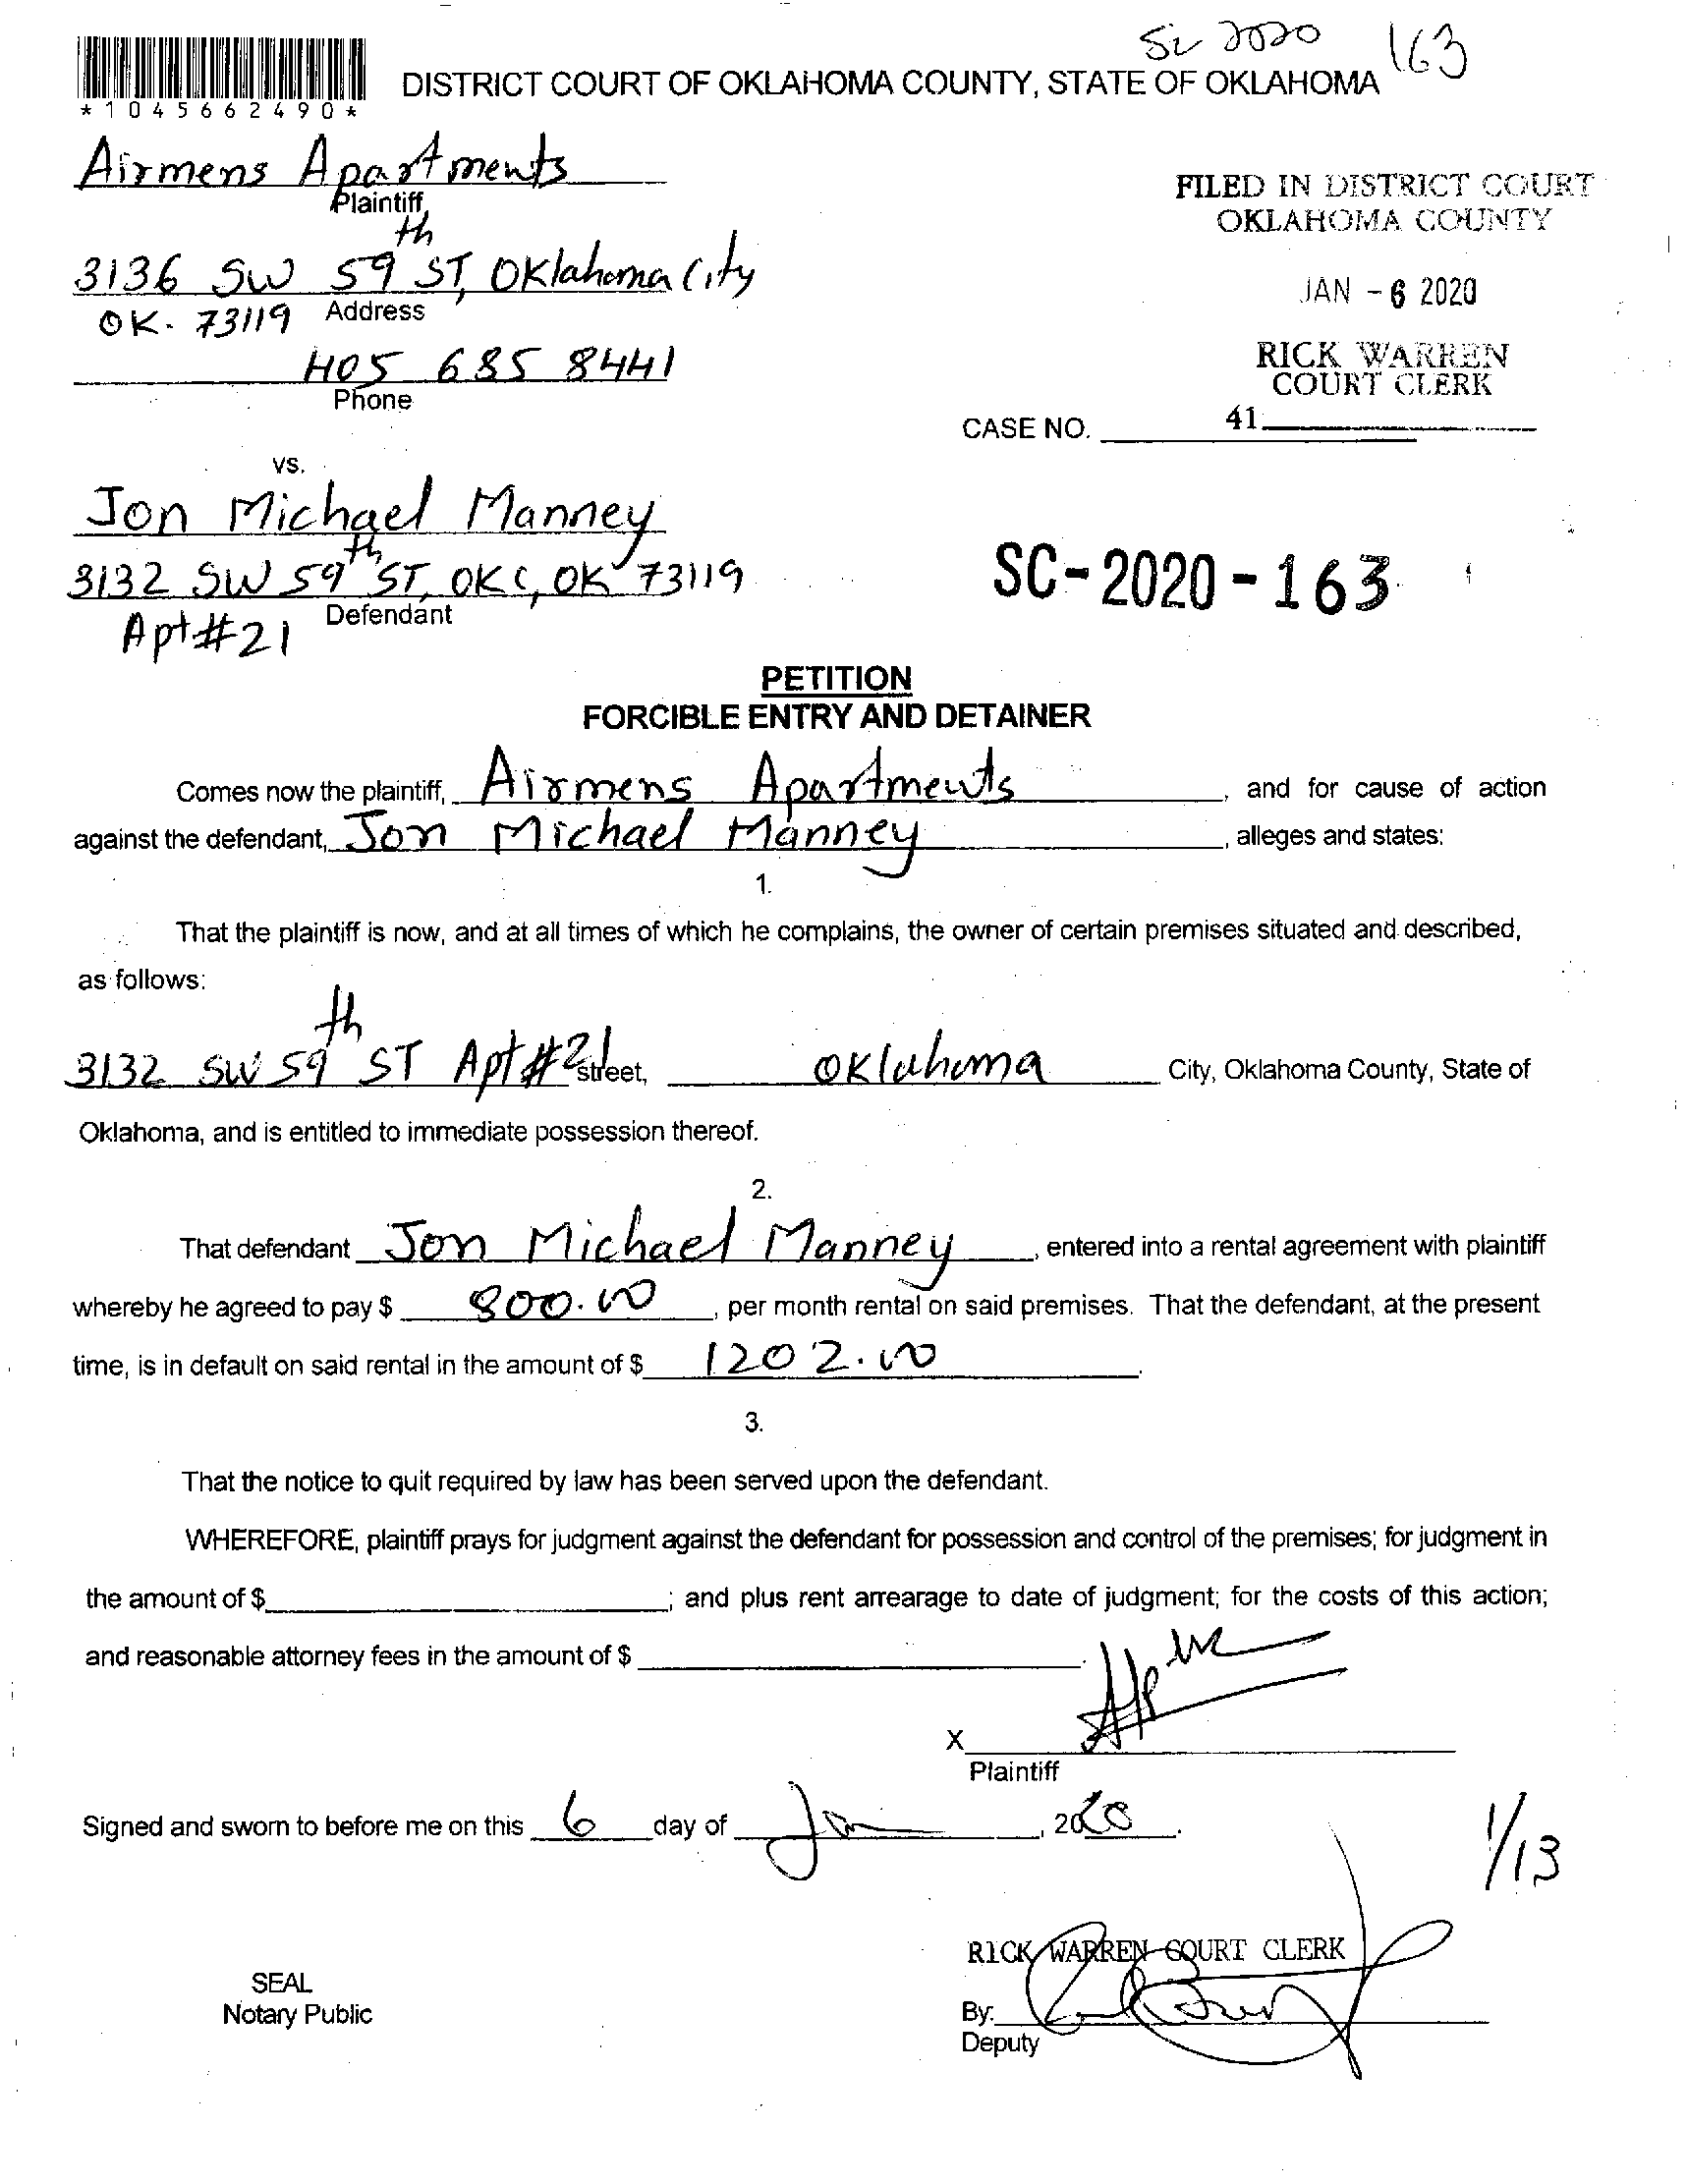 SC 2020 163
*1045662490*
DISTRICT COURT OF OKLAHOMA COUNTY, STATE OF OKLAHOMA
Airmens Apartments
Plaintiff
FILED IN DISTRICT COURT
OKLAHOMA COUNTY
3136 SW 59th ST, Oklahoma City
Address
OK. 73119
JAN - 6 2020
405 685 8441
Phone
RICK WARREN
COURT CLERK
CASE NO.
41
vs.
Jon Michael Manney
3132 SW 59th ST, OKC, OK 73119
Defendant
Apt#21
SC-2020-163
PETITION
FORCIBLE ENTRY AND DETAINER
Comes now the plaintiff, Airmens Apartments, and for cause of action
against the defendant, Jon Michael Manney, alleges and states:
1.
That the plaintiff is now, and at all times of which he complains, the owner of certain premises situated and described,
as follows:
3132 SW 59th ST Apt #21 street, Oklahoma City, Oklahoma County, State of
Oklahoma, and is entitled to immediate possession thereof.
2.
That defendant Jon Michael Manney, entered into a rental agreement with plaintiff
whereby he agreed to pay $ 800.00, per month rental on said premises. That the defendant, at the present
time, is in default on said rental in the amount of $ 1202.00.
3.
That the notice to quit required by law has been served upon the defendant.
WHEREFORE, plaintiff prays for judgment against the defendant for possession and control of the premises; for judgment in
the amount of $ ; and plus rent arrearage to date of judgment; for the costs of this action;
and reasonable attorney fees in the amount of $ .
X
Plaintiff
Signed and sworn to before me on this 6 day of Jan, 2020.
1/13
RICK WARREN COURT CLERK
SEAL
Notary Public
By:
Deputy